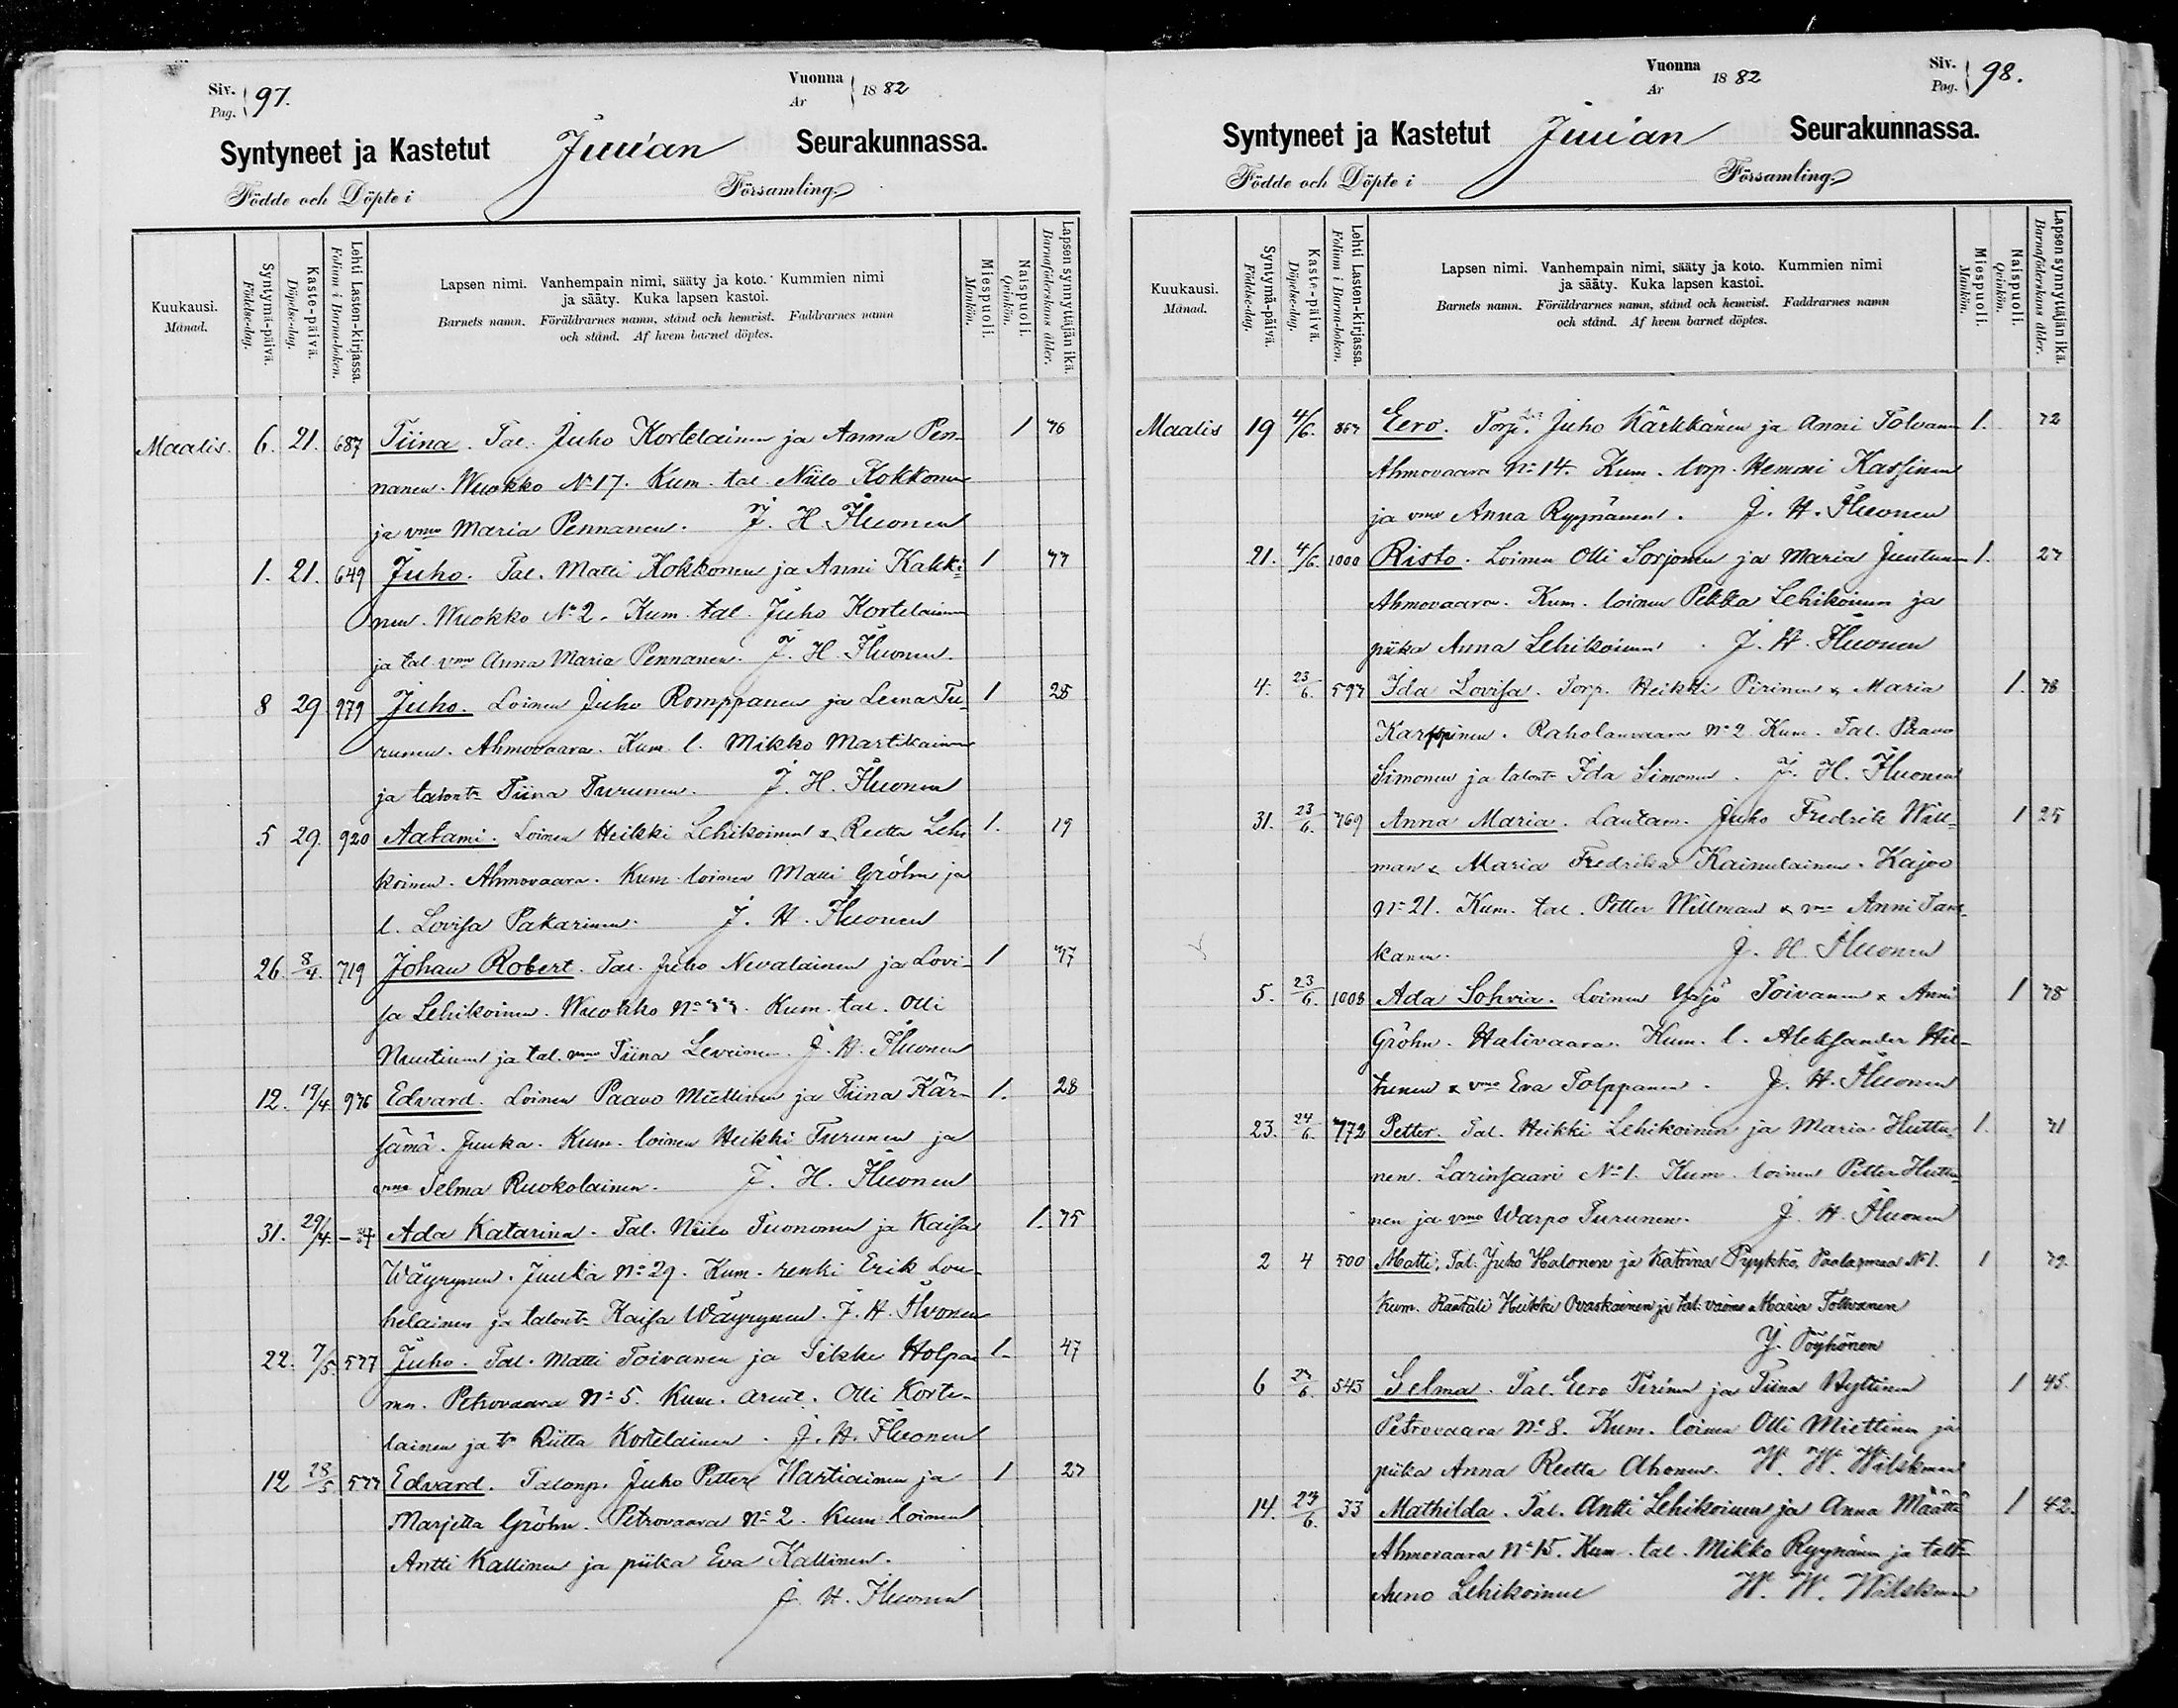 Siv. Pag. 97.
Vuonna År 1882
Syntyneet ja Kastetut Juuan Seurakunnassa.
Födde och Döpte i Församling.
Kuukausi. Månad.
Syntymä-päivä. Födelse-dag.
Kaste-päivä. Döpelse-dag.
Lehti Lasten-kirjassa. Folium i Barna-boken.
Lapsen nimi. Vanhempain nimi, sääty ja koto. Kummien nimi
ja sääty. Kuka lapsen kastoi.
Barnets namn. Föräldrarnes namn, stånd och hemvist. Faddrarnes namn
och stånd. Af hvem barnet döptes.
Miespuoli. Mankön.
Naispuoli. Qvinkön.
Lapsen synnyttäjän ikä. Barnaföderskans ålder.
Maalis. 6. 21. 687 Tiina. Tal. Juho Kortelainen ja Anna Pen- 1
nanen. Wuokko No 17. Kum. tal. Niilo Kokkonen
ja vmo Maria Pennanen. J. H. Ihuonen
1. 21. 649 Juho. Tal. Matti Kokkonen ja Anni Kakki- 1
nen. Wuokko No 2. Kum. tal. Juho Kortelainen
ja tal. vmo Anna Maria Pennanen. J. H. Ihuonen.
8 29 979 Juho. Loinen Juho Romppanen ja Leena Tu- 1 28
runen. Ahmovaara. Kum. l. Mikko Martikainen
ja talontr Tiina Turunen. J. H. Ihuonen
5 29. 920 Aatami. Loinen Heikki Lehikoinen & Reetta Lehi 1. 19
koinen. Ahmovaara. Kum. loinen Matti Gröhn ja
l. Lovisa Pakarinen. J. H. Ihuonen
26. 8/4. 719 Johan Robert. Tal. Juho Nevalainen ja Lovi- 1
sa Lehikoinen. Wuokko No 33. Kum. tal. Olli
Nuutinen ja tal. vmo Tiina Levrinen. J. H. Ihuonen
12. 19/4 976 Edvard. Loinen Paavo Miettinen ja Tiina Kär- 1. 28
sämä. Juuka. Kum. loinen Heikki Turunen ja
vmo Selma Ruokolainen. J. H. Ihuonen
31. 29/4. Ada Katarina. Tal. Niilo Tuononen ja Kaisa 1.
Wäyrynen. Juuka No 29. Kum. renki Erik Lou-
helainen ja talontr Kaisa Wäyrynen. J. H. Ihuonen
22. 7/5. 577 Juho. Tal. Matti Toivanen ja Silkko Holpai 1. 47
nen. Petrovaara No 5. Kum. arent. Olli Korte-
lainen ja tr Riitta Kortelainen. J. H. Ihuonen
12 28/5 577 Edvard. Talonp. Juho Petter Hartiainen ja 1 27
Marjetta Gröhn. Petrovaara No 2. Kum. loinen
Antti Kallinen ja piika Eva Kallinen.
J. H. Ihuonen
Vuonna År 1882
Siv. Pag. 98.
Syntyneet ja Kastetut Juuan Seurakunnassa.
Födde och Döpte i Församling.
Kuukausi. Månad.
Syntymä-päivä. Födelse-dag.
Kaste-päivä. Döpelse-dag.
Lehti Lasten-kirjassa. Folium i Barna-boken.
Lapsen nimi. Vanhempain nimi, sääty ja koto. Kummien nimi
ja sääty. Kuka lapsen kastoi.
Barnets namn. Föräldrarnes namn, stånd och hemvist. Faddrarnes namn
och stånd. Af hvem barnet döptes.
Miespuoli. Mankön.
Naispuoli. Qvinkön.
Lapsen synnyttäjän ikä. Barnaföderskans ålder.
Maalis 19 4/6. Eero. Torp. Juho Kärkkänen ja Anni Tolvanen 1.
Ahmovaara No 14. Kum. torp. Hemmi Kassinen
ja vmo Anna Ryynänen. J. H. Ihuonen
21. 4/6. 1000 Risto. Loinen Olli Sorjonen ja Maria Juntunen 1. 27
Ahmovaara. Kum. loinen Pekka Lehikoinen ja
piika Anna Lehikoinen. J. H. Ihuonen
4. 23/6. 597 Ida Lovisa. Torp. Heikki Pirinen & Maria 1.
Karppinen. Raholanvaara No 2 Kum. Tal. Paavo
Simonen ja talontr Ida Simonen. J. H. Ihuonen
31. 23/6. 769 Anna Maria. Lautam. Juho Fredrik Will- 1 25
man & Maria Fredrika Kainulainen. Kajoo
No 21. Kum. tal. Petter Willman & vmo Anni Tans-
kanen. J. H. Ihuonen
5. 23/6. 1008 Ada Sohvia. Loinen Yrjö Toivanen & Anni 1
Gröhn. Halivaara. Kum. l. Aleksander Hil-
tunen & vmo Eva Tolppanen. J. H. Ihuonen
23. 24/6. 772 Petter. Tal. Heikki Lehikoinen ja Maria Huttu- 1.
nen. Larinsaari No 1. Kum. loinen Petter Huttu-
nen ja vmo Warpo Turunen. J. H. Ihuonen
2 4 500 Matti. Tal. Juho Halonen ja Katrina Pyykkö, Paalasmaa No 1. 1
Kum. Räätäli Heikki Ovaskainen ja tal. vaimo Maria Tolvanen
Y. Pöyhönen
6 27/6. 543 Selma. Tal. Eero Pirinen ja Tiina Hyttinen 1 45.
Petrovaara No 8. Kum. loinen Olli Miettinen ja
piika Anna Reetta Ahonen. W. W. Wilskman
14. 23/6. 33 Mathilda. Tal. Antti Lehikoinen ja Anna Määttä 1 42.
Ahmovaara No 15. Kum. tal. Mikko Ryynänen ja taltr
Auno Lehikoinen W. W. Wilskman